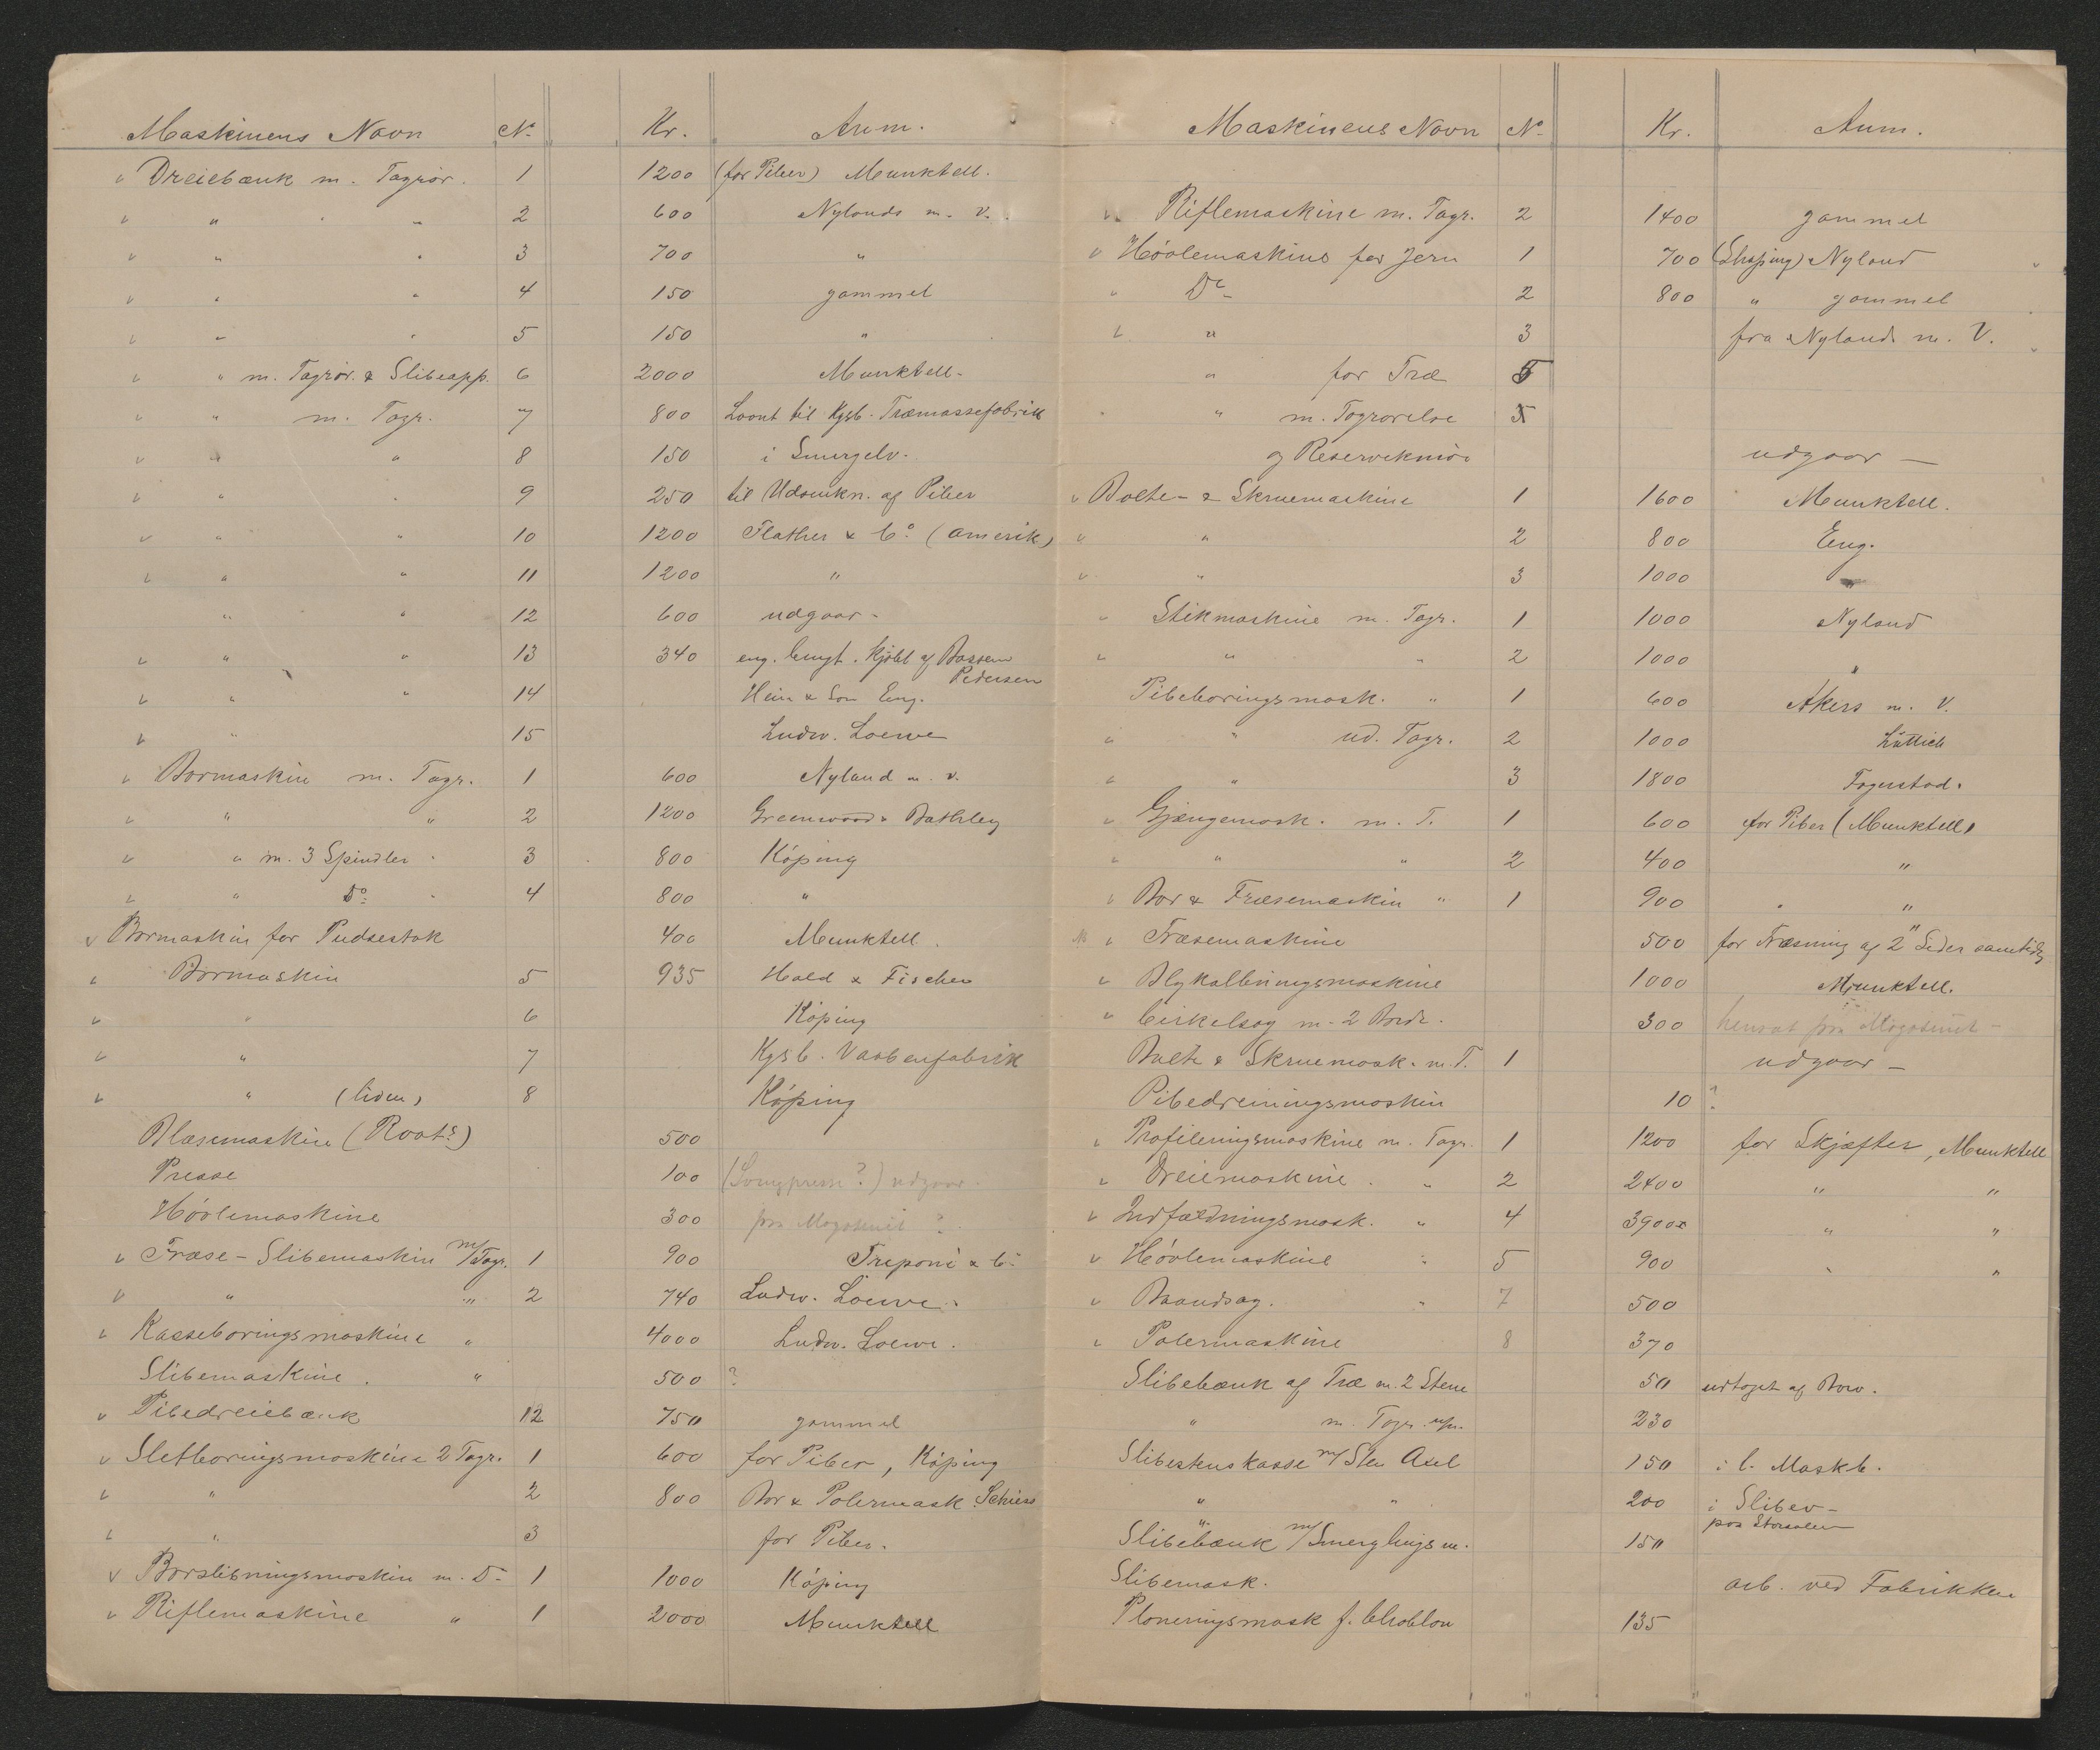 Maskinens Navn No Kr. Anm.
v Dreiebænk m. Tagrør. 1 1200 (for Piber) Munktell.
v " " 2 600 Nylands m. V.
v " " 3 700 "
v " " 4 150 gammel
v " " 5 150 "
v " m. Tagrør. & Slibeapp. 6 2000 Munktell.
v " m. Tagr. 7 800 Laant til Kgsb. Træmassefabrik
v " " 8 150 i Smergelv.
v " " 9 250 til Udsenkn. af Piber
v " " 10 1200 Flather & Co. (Amerik)
v " " 11 1200 "
" " 12 600 udgaar -
v " " 13 340 eng. kjøbt af Bassem
Pedersen
v " " 14 Hein & Son Eng.
v " 15 Ludw. Loewe
v Bormaskin m. Tagr. 1 600 Nyland m. v.
v " " 2 1200 Greenwood & Bathley
v " m. 3 Spindler " 3 800 Köping
v " Do. " 4 800 "
v Bormaskin for Pudsestok 400 Munktell.
v Bormaskin 5 935 Hald & Fischer
v " 6 Köping
v " 7 Kgsb. Vaabenfabrik
v " (liden) 8 Köping
Blæsemaskine (Roots) 500
Presse 100 (?) udgaar.
Høvlemaskine 300 paa Magasinet ?
v Fræse-Slibemaskin m/Tagr. 1 900 Treponi & Co
v " " 2 740 Ludw. Loewe.
v Kasseboringsmaskine " 4000 Ludw. Loewe.
Slibemaskine. " 500 ?
v Pibedreiebænk 12 750 gammel
v Sletboringsmaskine 2 Tagr. 1 600 for Piber, Köping
v " 2 800 Bor & Polermask. Schiess
v " 3 for Piber.
v Borslibningsmaskin m. Do 1 1000 Köping
v Riflemaskine " 1 2000 Munktell
Maskinens Navn No Kr. Anm.
v Riflemaskine m. Tagr. 2 1400 gammel
v Høvlemaskine for Jern 1 700 (Shaping) Nyland
" Do 2 800 " gammel
v " 3 fra Nylands m. V.
" for Træ 5
" m. Tagrørelse 5
og udgaar -
v Bolte- & Skruemaskine 1 1600 Munktell.
v " 2 800 Eng.
v " 3 1000 "
" Stikmaskine m. Tagr. 1 1000 Nyland
v " " 2 1000 "
Pibeboringsmask. " 1 600 Akers m. V.
v " ud. Tagr. 2 1000 Lüttich
v " 3 1800 Fagerstad.
v Gjængemask. m. T. 1 600 for Piber (Munktell)
v " " 2 400 "
v Bor & Fræsemaskin " 1 900 " "
v Fræsemaskine 500 for Fræsning af 2" Sider samtidig
v Blykalbringsmaskine 1000 Munktell.
v Cirkelsag m. 2 Borde. 300 hensat paa Magasinet -
Bolte & Skruemask. m. T. 1 udgaar -
Pibedreiningsmaskin 10 ?
v Profileringsmaskine m. Tagr. 1 1200 for Skjæfter, Munktell
v Dreiemaskine. " 2 2400 " "
v Indfældningsmask. " 4 3900 " "
v Høvlemaskine " 5 900 " "
v Baandsag. " 7 500
v Polermaskine 8 370
Slibebænk af Træ m. 2 Stene 50 udtaget af Borv.
" m. Tagr. 230
Slibestenskasse m/ Sten Axel 150 i l. Maskb.
" " 200 i Slibev-
paa Storsalen
Slibebænk m/Smerglings m. 150
Slibemask. arb. ved Fabrikken
Planeringsmask f. Chablon 135